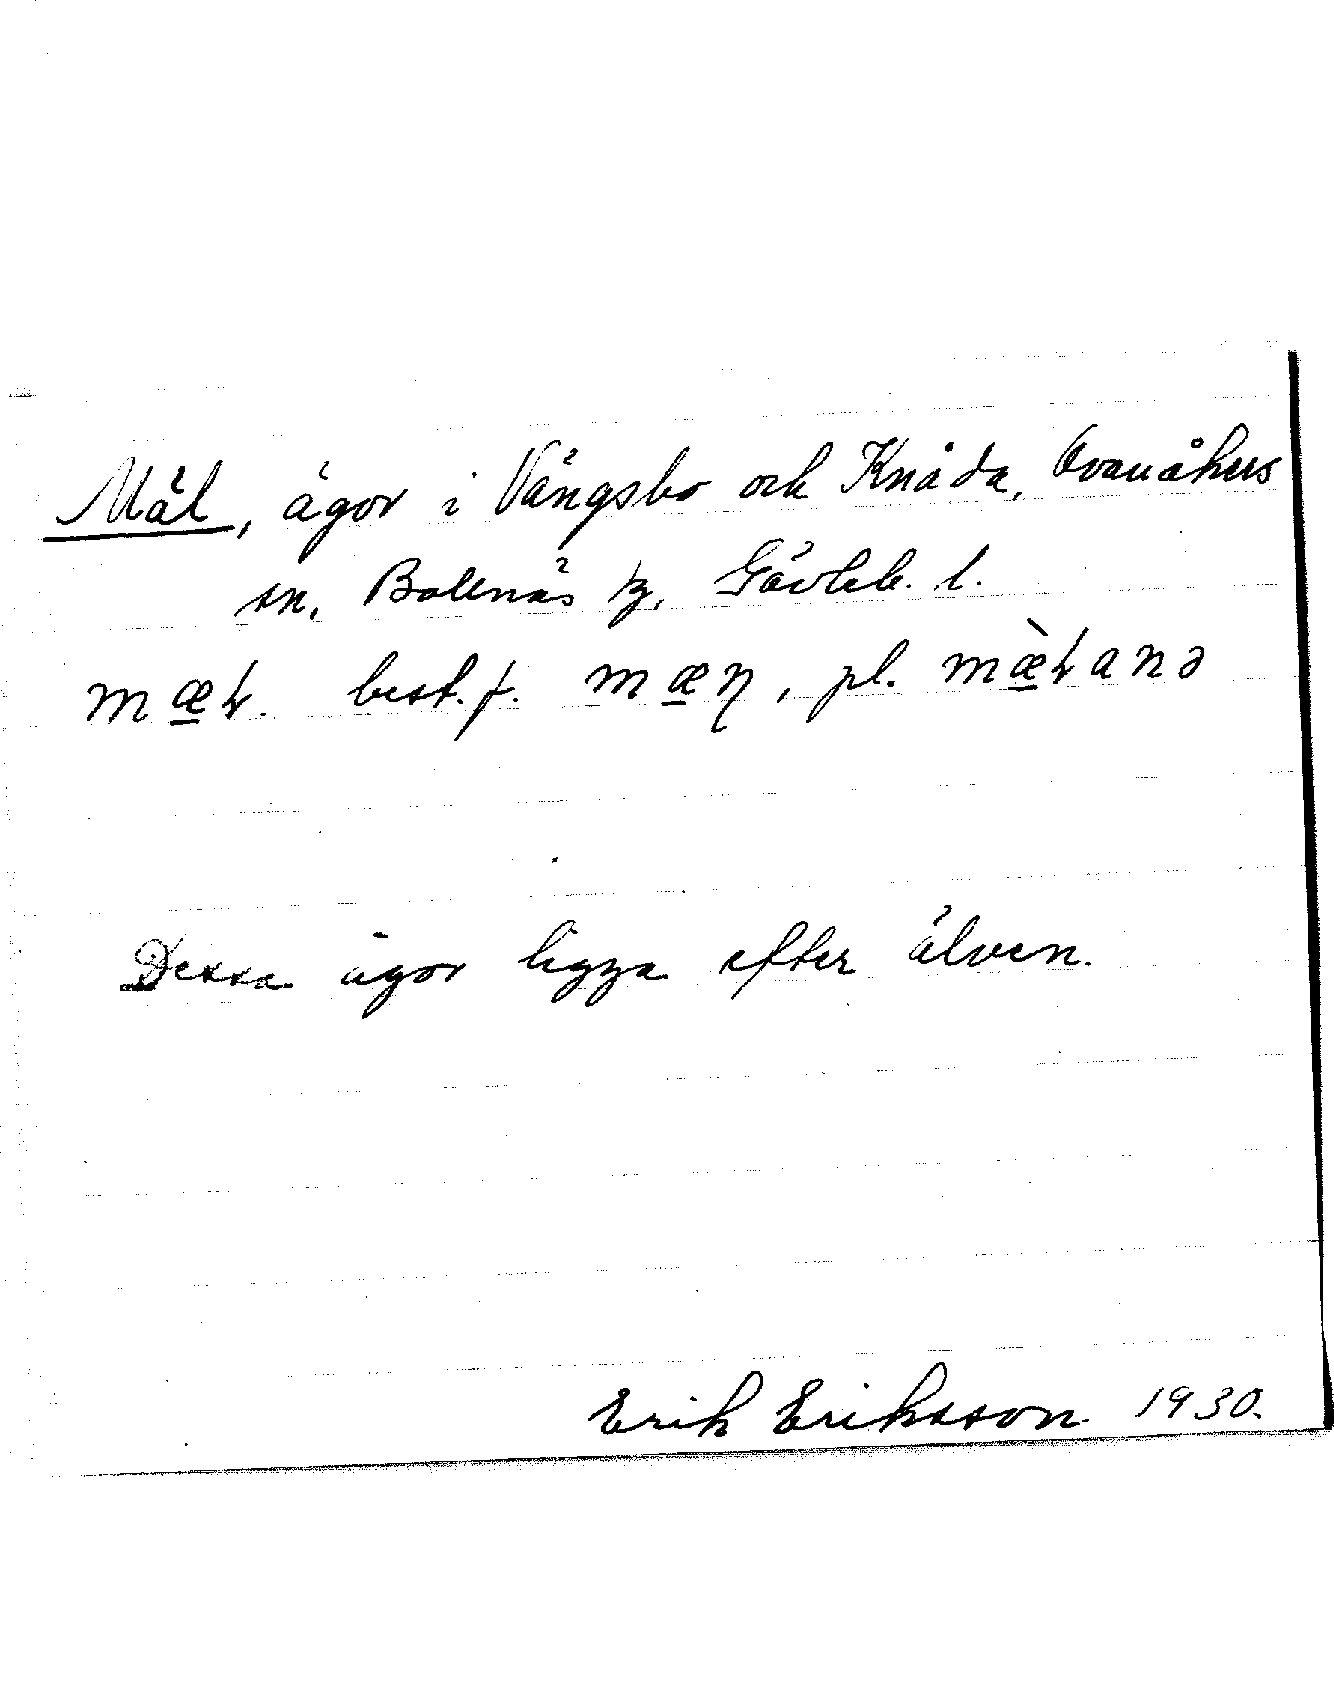 Mäl, ägor i Vängsbo och Knåda, Ovanåkers
sn, Bollnäs tg, Gävleb. l.
mæɫ. best.f. mæɳ, pl. mæ̀ɫanə
Dessa ägor ligga efter älven.
Erik Eriksson 1930.